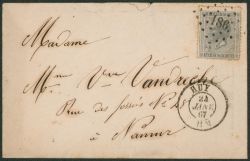 186
Madame
HUY
24
JANV
67
Mme Vve Vandriche
Rue des fossés No
à Namur